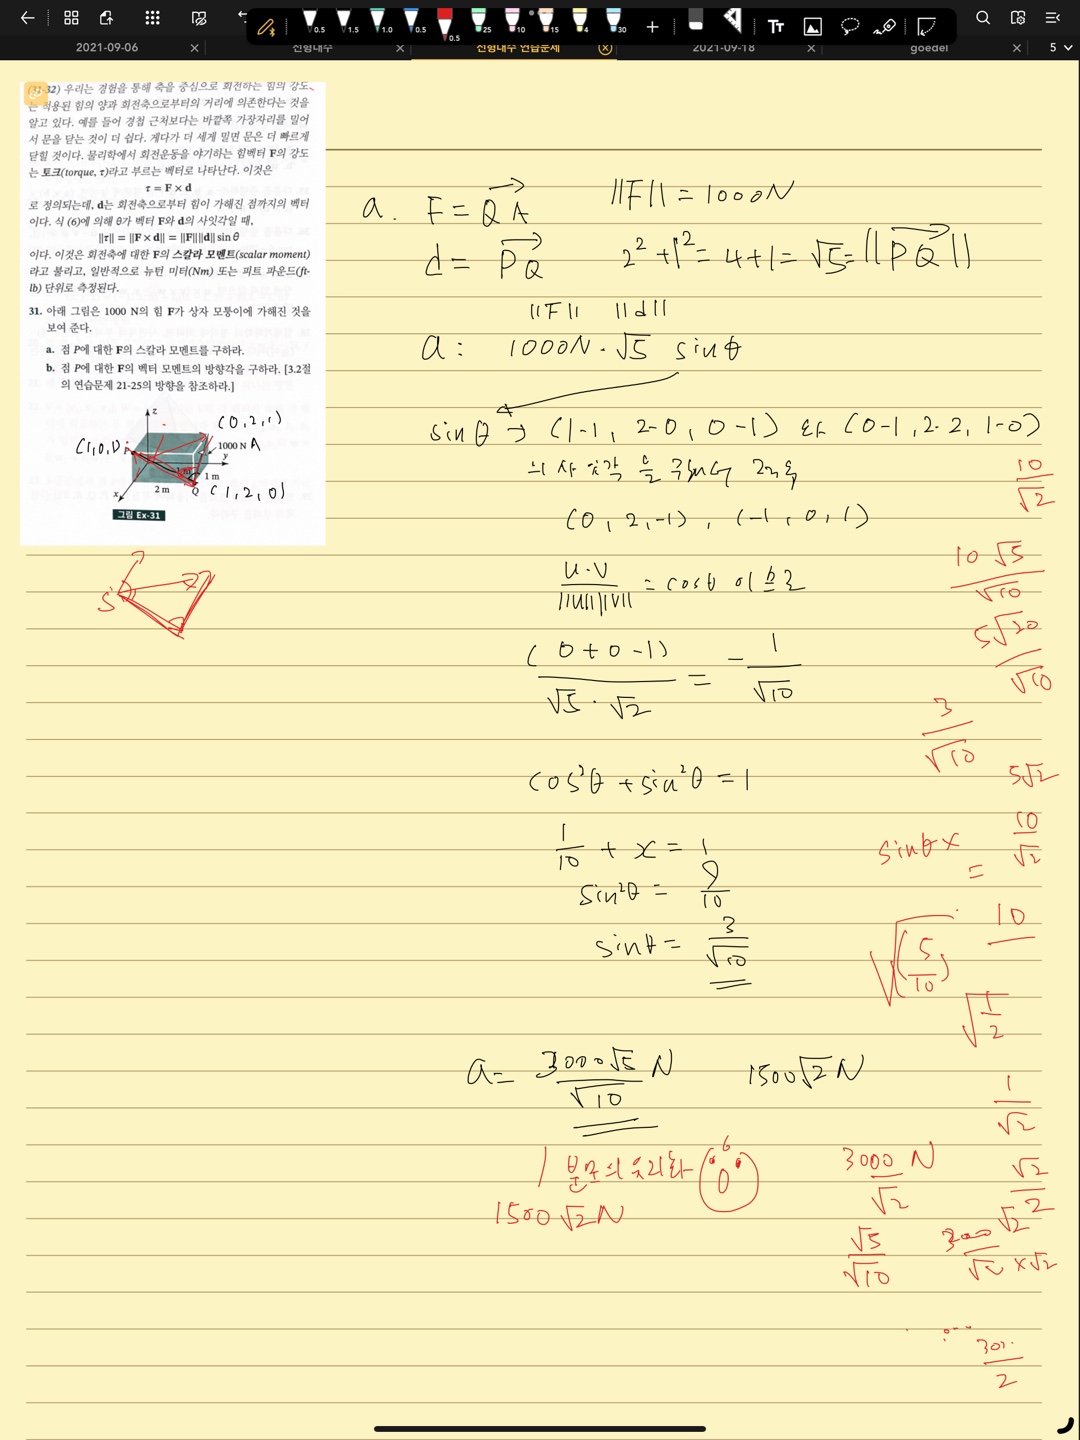 0.5
1.5
1.0
0.5
0.5
25
10
15
4
30
Tт
2021-09-06
선형대수
선형대수 연습문제
2021-09-18
goedel
5
(31-32) 우리는 경험을 통해 축을 중심으로 회전하는 힘의 강도
는 적용된 힘의 양과 회전축으로부터의 거리에 의존한다는 것을
알고 있다. 예를 들어 경첩 근처보다는 바깥쪽 가장자리를 밀어
서 문을 닫는 것이 더 쉽다. 게다가 더 세게 밀면 문은 더 빠르게
닫힐 것이다. 물리학에서 회전운동을 야기하는 힘벡터 F의 강도
는 토크(torque, τ)라고 부르는 벡터로 나타난다. 이것은
τ = F × d
로 정의되는데, d는 회전축으로부터 힘이 가해진 점까지의 벡터
이다. 식 (6)에 의해 θ가 벡터 F와 d의 사잇각일 때,
||τ|| = ||F × d|| = ||F||||d|| sin θ
이다. 이것은 회전축에 대한 F의 스칼라 모멘트(scalar moment)
라고 불리고, 일반적으로 뉴턴 미터(Nm) 또는 피트 파운드(ft-
lb) 단위로 측정된다.
31. 아래 그림은 1000 N의 힘 F가 상자 모퉁이에 가해진 것을
보여 준다.
a. 점 P에 대한 F의 스칼라 모멘트를 구하라.
b. 점 P에 대한 F의 벡터 모멘트의 방향각을 구하라. [3.2절
의 연습문제 21-25의 방향을 참조하라.]
z
(0,2,1)
(1,0,1)
P
1000 N A
y
1 m
1 m
2 m
Q
(1,2,0)
x
그림 Ex-31
a. F = QA ||F|| = 1000N
d = PQ 2²+1² = 4+1 = √5 = ||PQ||
||F|| ||d||
a: 1000N·√5 sinθ
sinθ → (1-1, 2-0, 0-1) 와 (0-1, 2-2, 1-0)
의 사잇각을
(0, 2, -1), (-1, 0, 1)
u·v / ||u||||v|| = cosθ 이므로
(0+0-1) / √5·√2 = - 1/√10
cos²θ + sin²θ = 1
1/10 + x = 1
sin²θ = 9/10
sinθ = 3/√10
a = 3000√5/√10 N 1500√2 N
분모의 유리화
1500√2 N
S
10/√2
10√5/√10
5√20/√10
3/√10
5√2
sinθ x = 10/√2
10
√(5/10)
√1/2
1/√2
3000/√2 N
√2/2
√5/√10
3000/√2 ×√2
√2
2